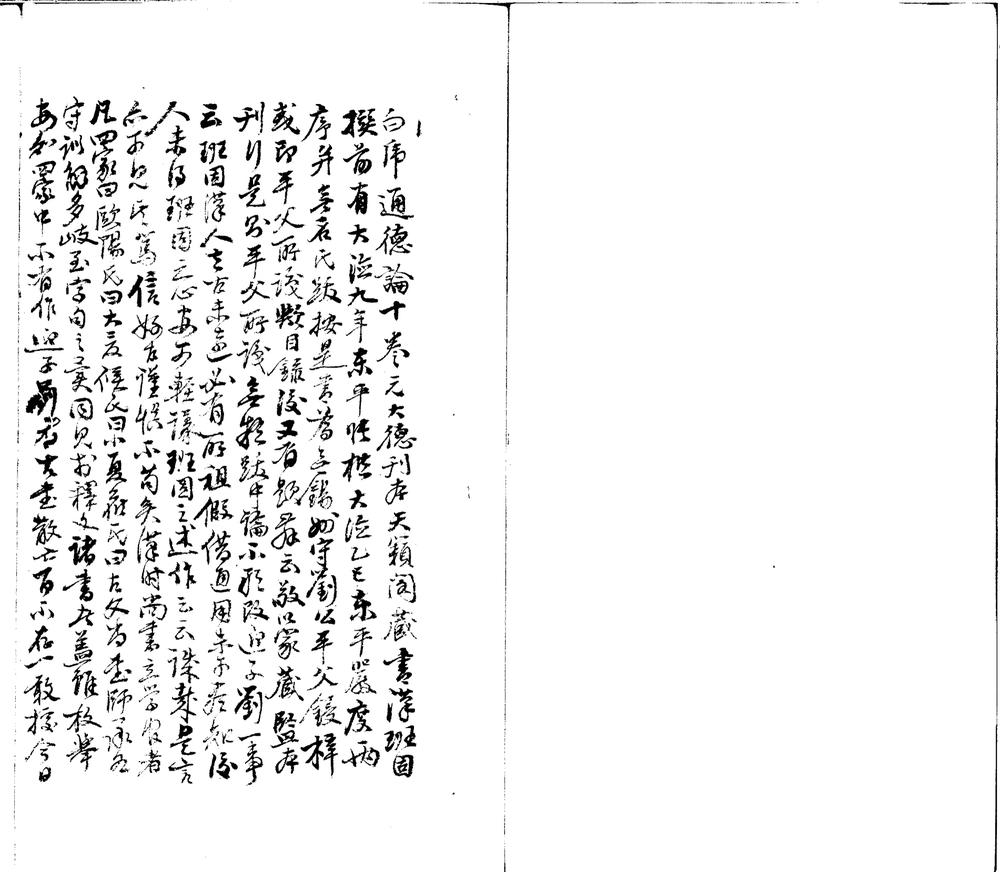 白虎通德論十卷元大德刊本天籟閣藏書漢班固
撰前有大德九年東平張楷大德乙巳東平嚴度兩
序并無名氏跋按是書為無錫州守劉公平父鋟梓
或即平父所識歟目錄後又有題辭云敬以家藏監本
刊行是出平父所識無疑跋中論不應改迎子劉一事
云班固漢人去古未遠必有所祖假借通用未可盡知後
人未得班固之心安可輕議班固之述作云云誠哉是言
亦可見其篤信好古謹慎不苟矣漢時尚書立學官者
凡四家曰歐陽氏曰大夏侯氏曰小夏侯氏曰古文尚書師承各
守訓解多岐至字句之異同見於釋文諸書者蓋難枚舉
安知四家中不有作迎子劉者古書散亡百不存一敢據今日